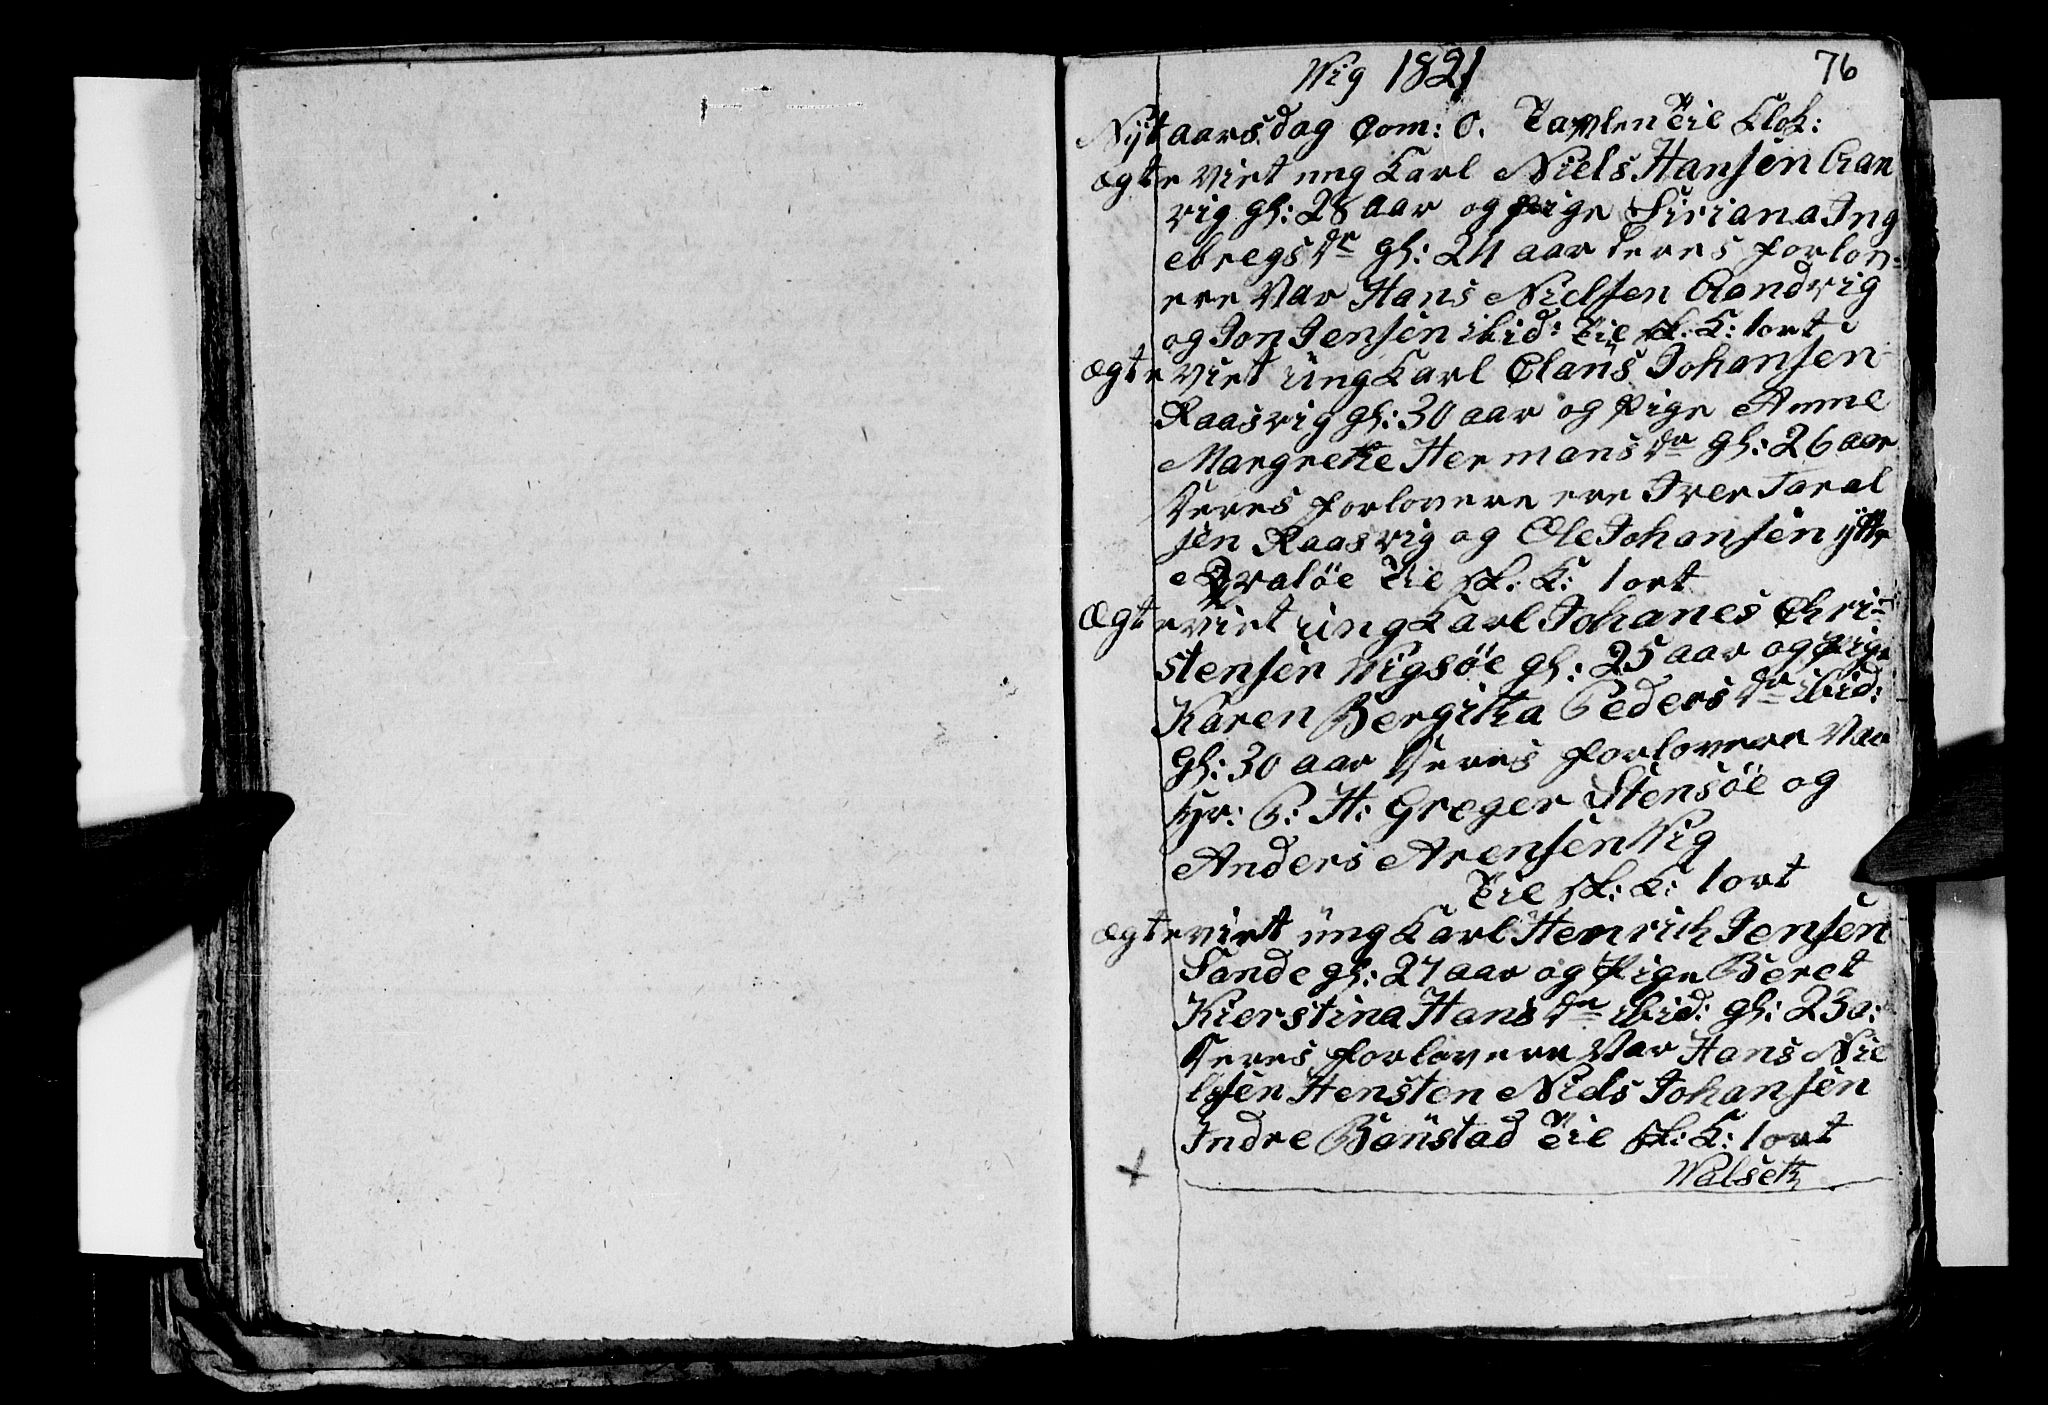 76
Wig 1821
Nÿtaarsdag Com: 0. Tavlen til Klok:
Ægte viet ung Karl Niels Hansen Aan
vig gl: 28 aar og Pige Siriana Ing
ebregsdr gl: 24 aar deres forlov-
ere Var Hans Nielsen Aandvig
og Jon Jensen ibid: til sk: K: 1 ort
Ægte viet üng Karl Claüs Johansen
Raasvig gl: 30 aar og Pige Anne
Margrethe Hermansdr gl: 26 aar
deres forlovere ere Iver Taral
sen Raasvig og Ole Johansen ÿttr
e Qvaløe til sk: K: 1 ort
Ægte viet üng Karl Johanes Chri-
stensen Wigsøe gl: 25 aar og Pige
Karen Bergitha Pedersdr ibid:
gl: 30 aar deres forlovere Var
Hr: P: H: Greger Stensøe og
Anders Arensen Wig
til sk: K: 1 ort
Ægte viet üng Karl Henrich Jensen
Sande gl: 27 aar og Pige Beret
Kierstina Hansdr ibid: gl: 23 a:
deres forlovere Var Hans Nie
lsen Hensten Niels Johansen
Indre Bønstad til sk: K: 1 ort
Walseth